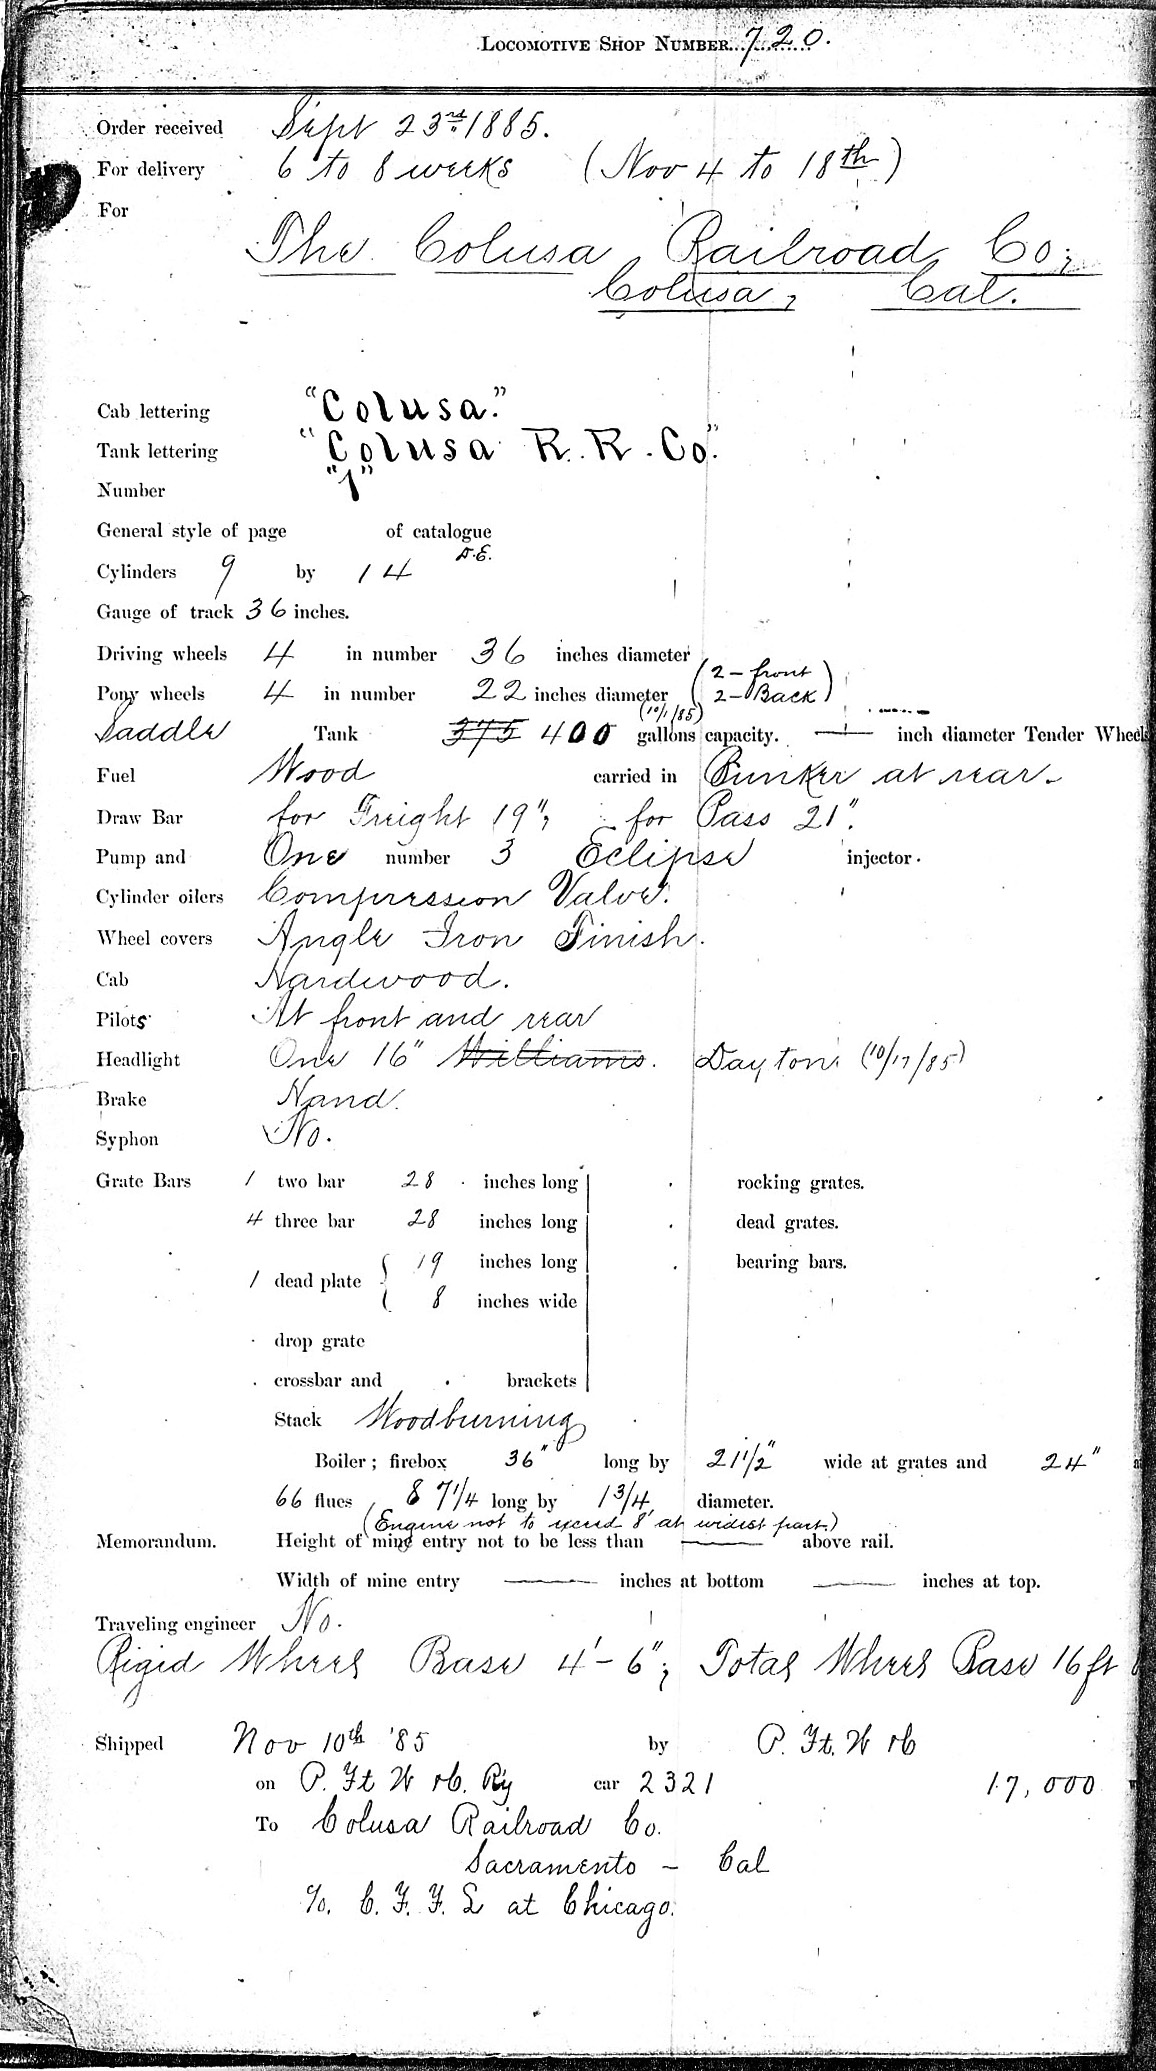 LOCOMOTIVE SHOP NUMBER 720.
Order received Sept 23rd. 1885.
For delivery 6 to 8 weeks (Nov 4 to 18th)
For
The Colusa Railroad Co;
Colusa, Cal.
Cab lettering "Colusa."
Tank lettering "Colusa R. R. Co."
Number "1"
General style of page of catalogue
D.E.
Cylinders 9 by 14
Gauge of track 36 inches.
Driving wheels 4 in number 36 inches diameter
Pony wheels 4 in number 22 inches diameter (2 - front
2 - Back)
(10/1/85)
Saddle Tank 375 400 gallons capacity. — inch diameter Tender Wheel
Fuel Wood carried in Bunker at rear.
Draw Bar for Freight 19"; for Pass 21".
Pump and One number 3 Eclipse injector.
Cylinder oilers Compression Valve.
Wheel covers Angle Iron Finish.
Cab Hardwood.
Pilots At front and rear
Headlight One 16" Williams. Dayton (10/17/85)
Brake Hand.
Syphon No.
Grate Bars 1 two bar 28 inches long rocking grates.
4 three bar 28 inches long dead grates.
1 dead plate { 19 inches long bearing bars.
8 inches wide
drop grate
crossbar and brackets
Stack Woodburning
Boiler; firebox 36" long by 21 1/2" wide at grates and 24"
66 flues 87 1/4 long by 1 3/4 diameter.
(Engine not to exceed 8' at widest part.)
Memorandum. Height of mine entry not to be less than — above rail.
Width of mine entry — inches at bottom — inches at top.
Traveling engineer No.
Rigid Wheel Base 4'-6"; Total Wheel Base 16 ft
Shipped Nov 10th '85 by P. Ft. W & C
on P. Ft W & C. Ry car 2321 17,000
To Colusa Railroad Co.
Sacramento - Cal
c/o. C. F. F. L at Chicago.